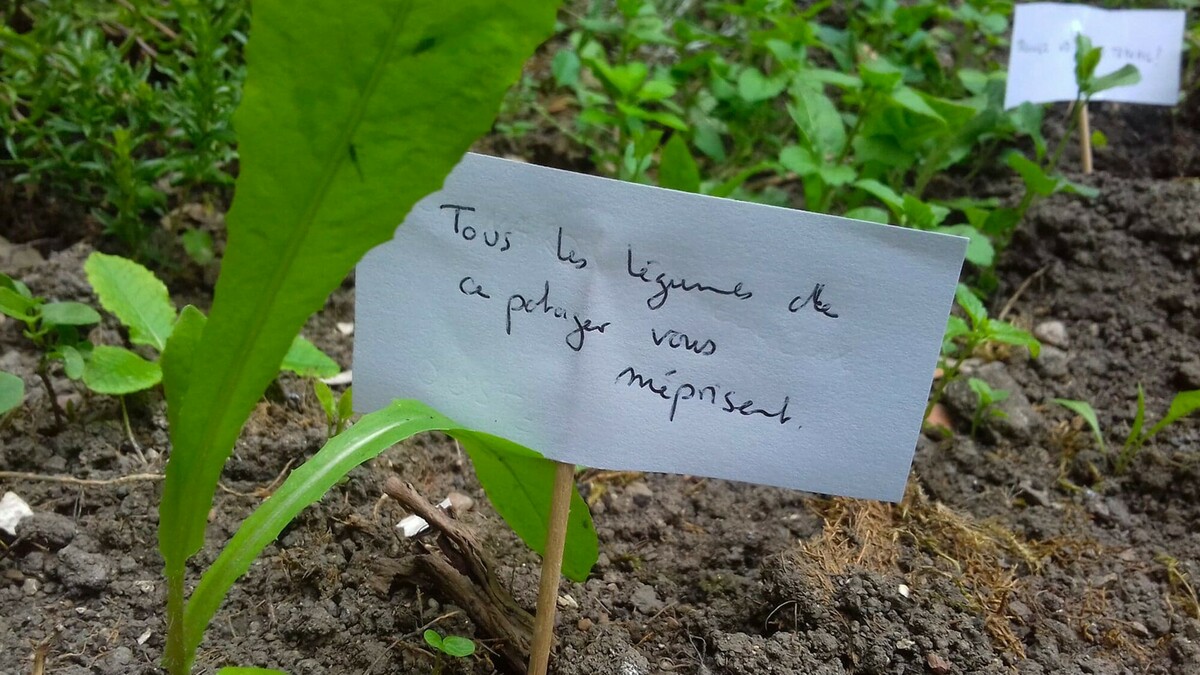 Tous les légumes de
ce potager vous
méprisent.